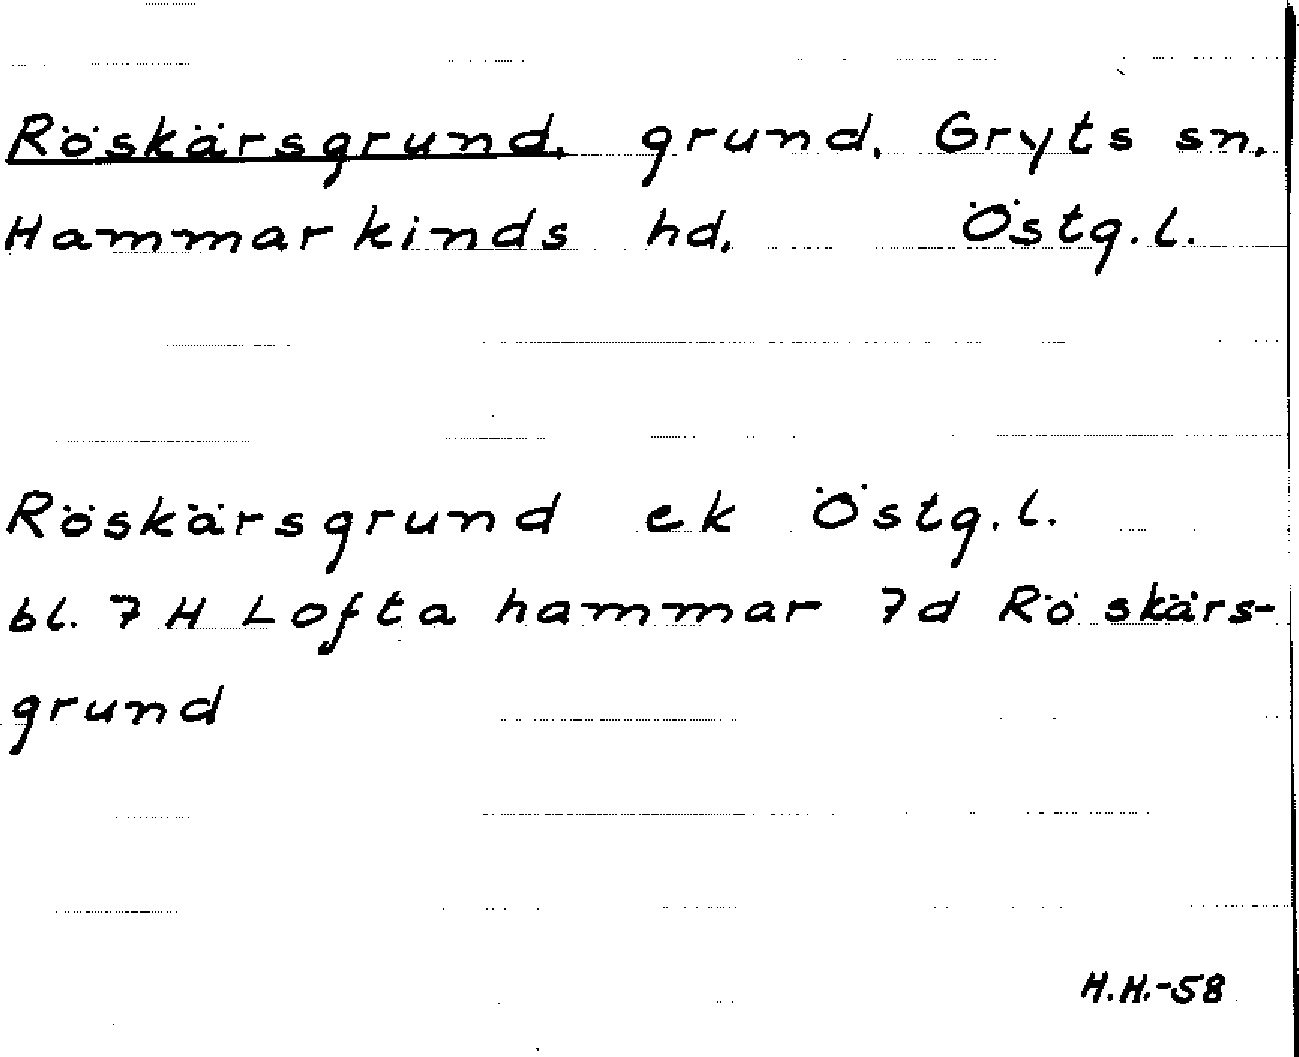 Röskärsgrund, grund, Gryts sn,
Hammarkinds hd, Östg.l.
Röskärsgrund ek Östg.l.
bl. 7 H Loftahammar 7d Röskärs-
grund
H.H.-58